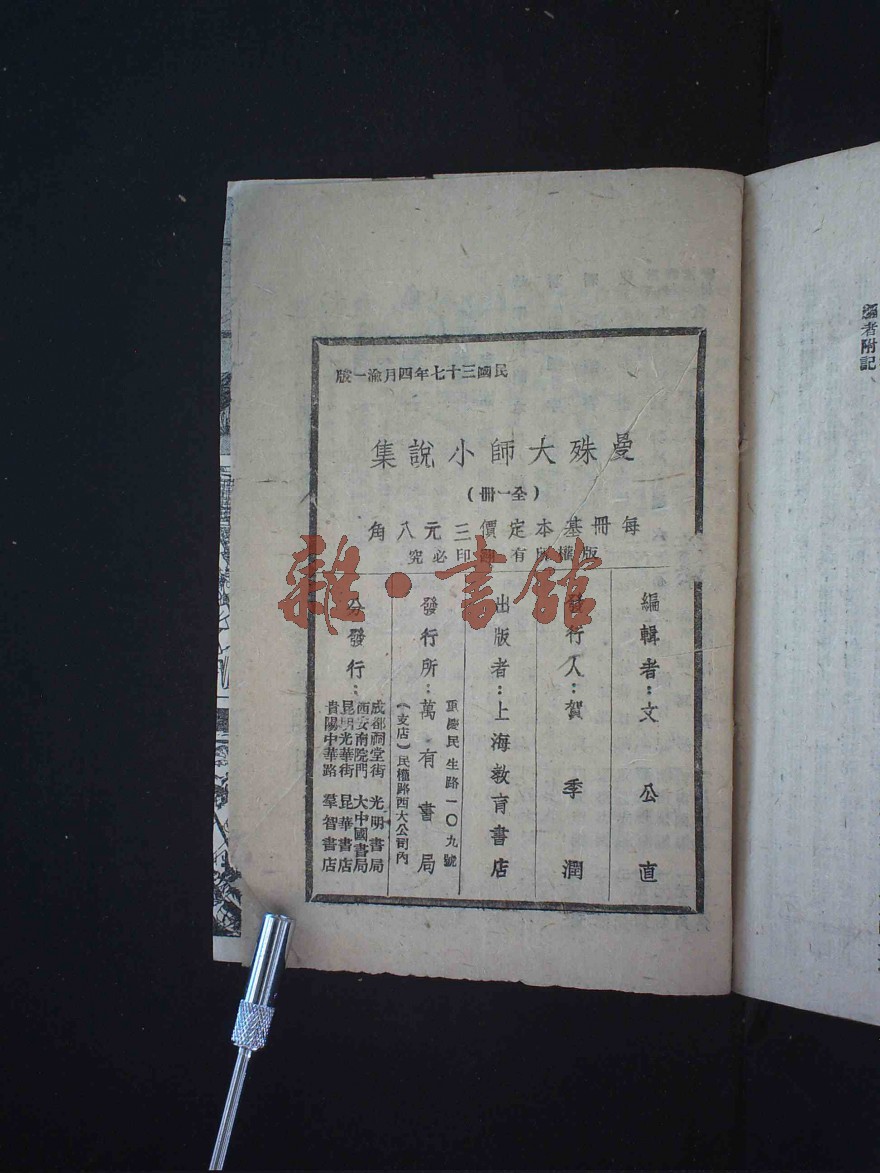 民國三十七年四月渝一版
曼殊大師小說集
(全一冊)
每冊基本定價三元八角
版權所有 翻印必究
編輯者：文公直
發行人：賀季潤
出版者：上海教育書店
發行所：萬有書局
重慶民生路一〇九號
(支店)民權路西大公司內
分發行：
成都祠堂街 光明書局
西安南院門 大中國書局
昆明光華街 昆華書店
貴陽中華路 羣智書店
編者附記
雜·書館